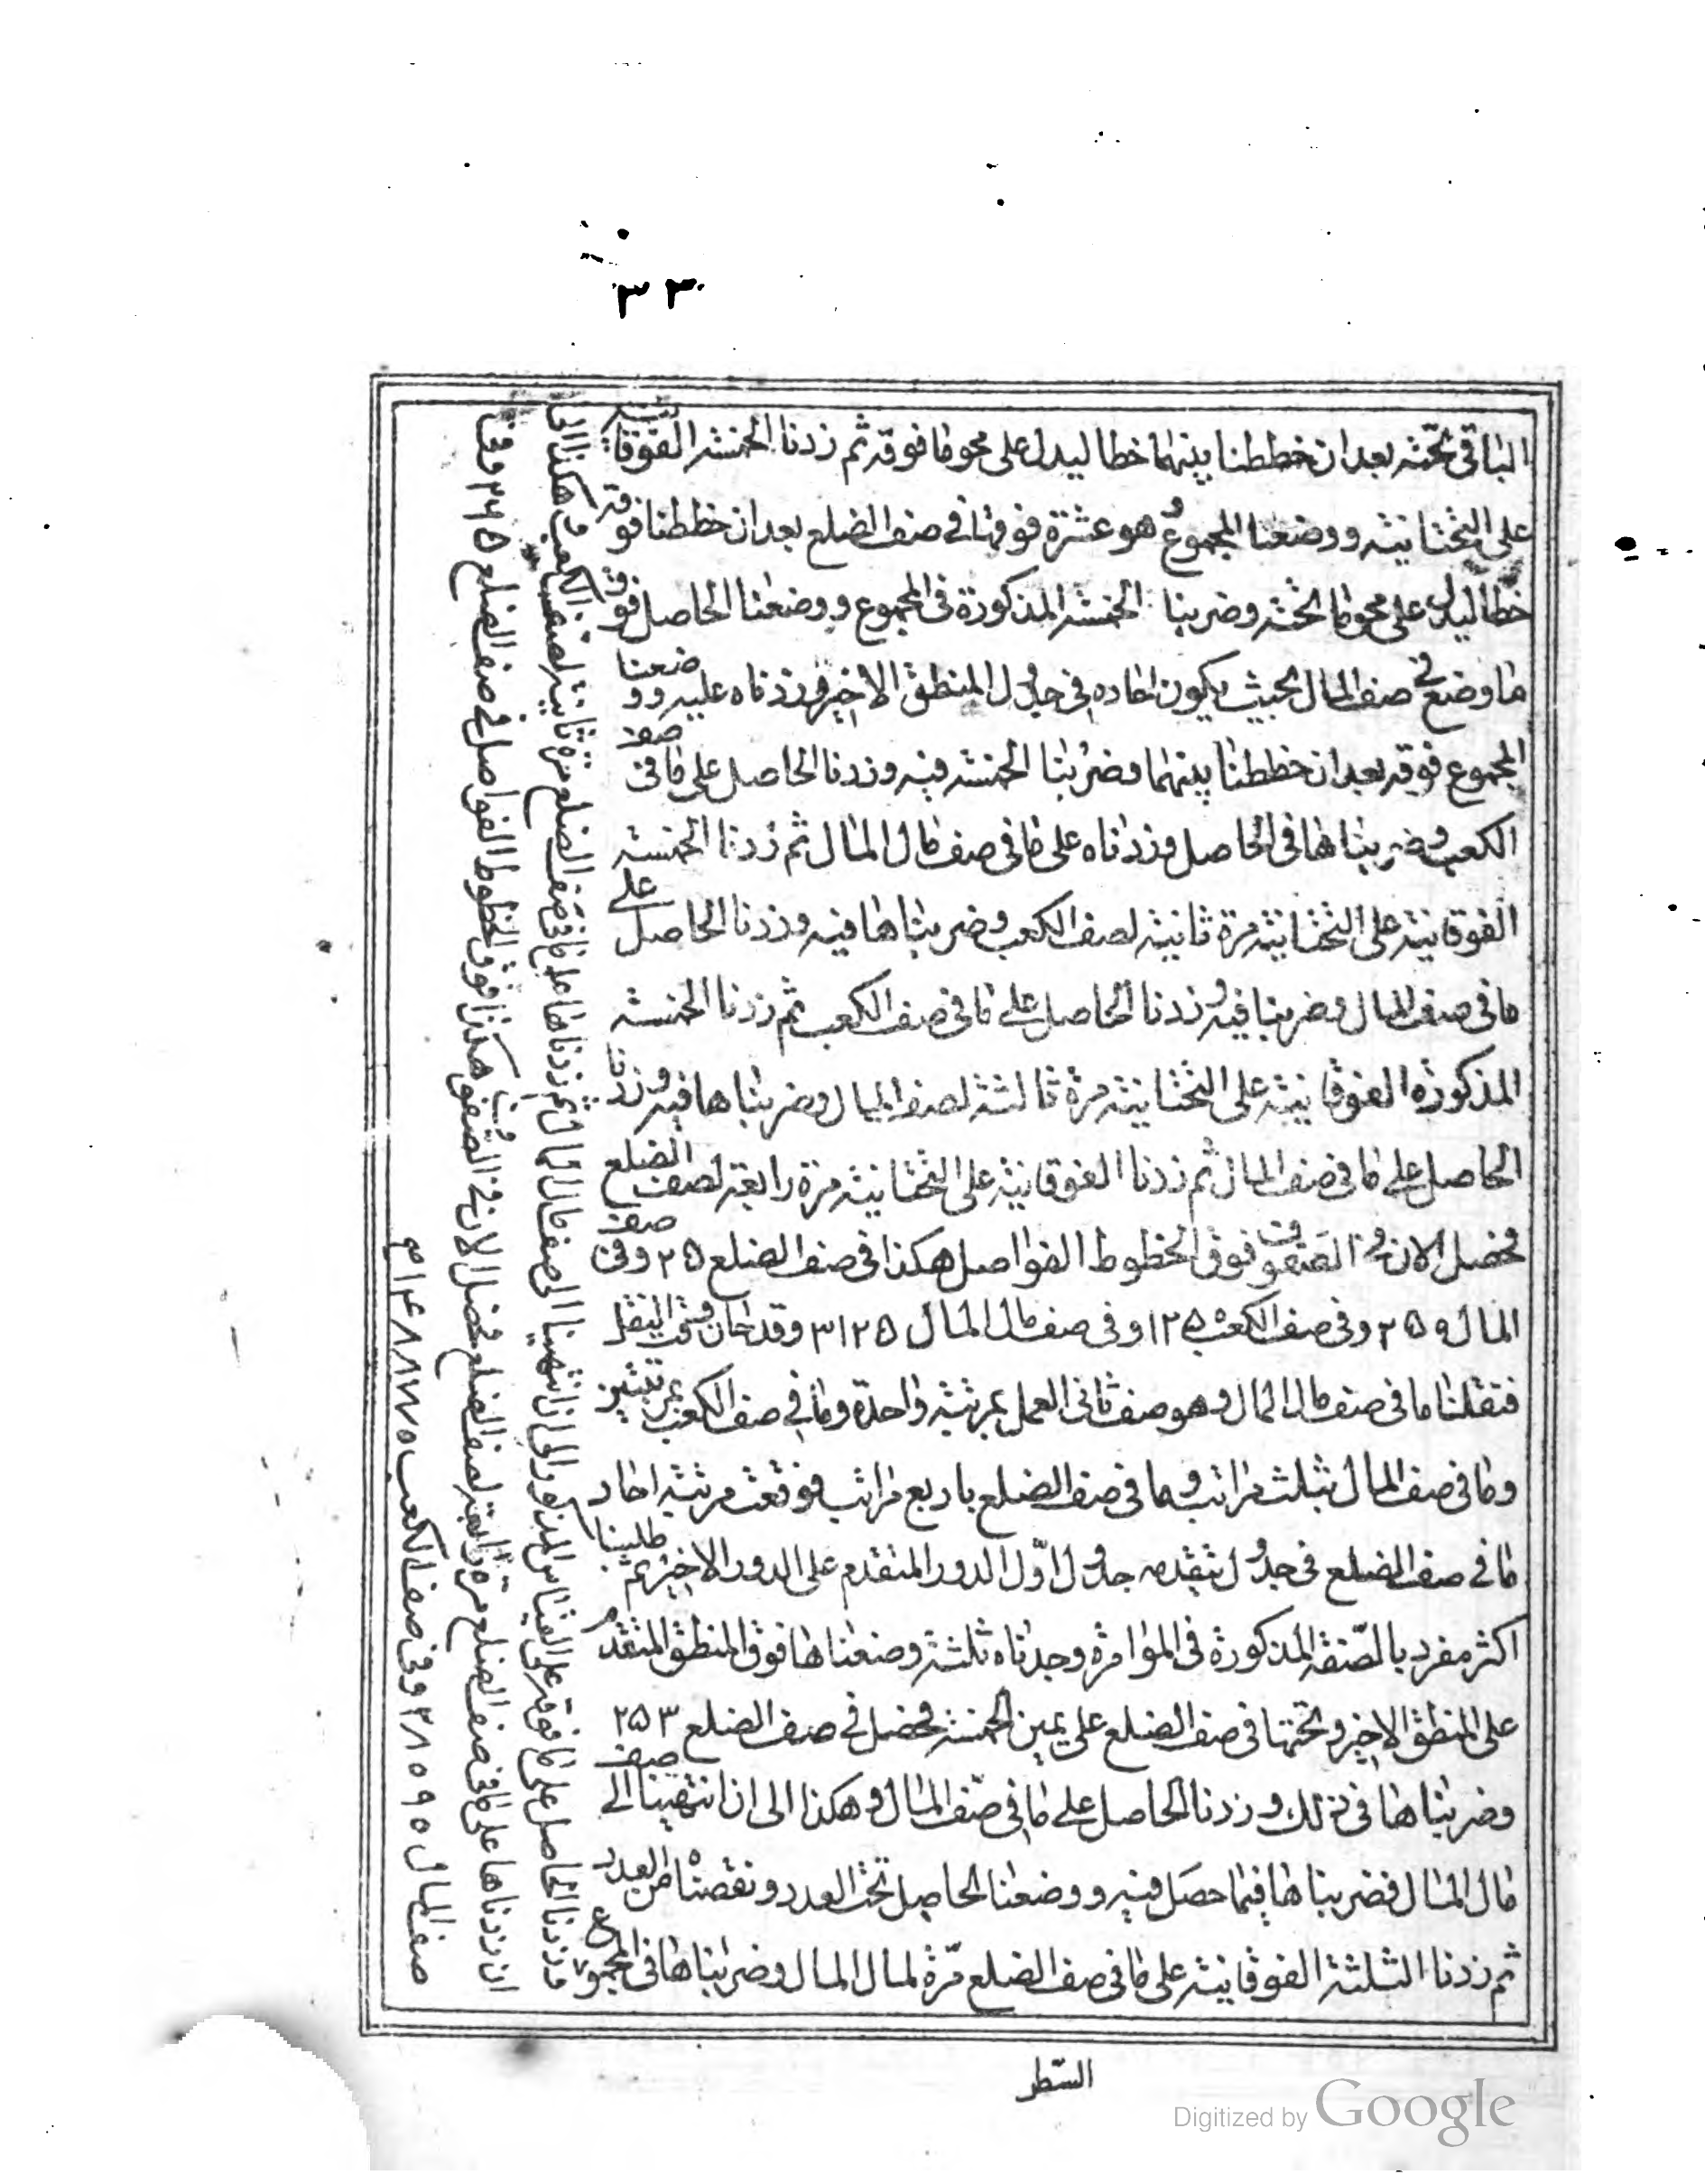 ٣٣
الباقى تحته بعد ان خططنا بينهما خطا ليدل على محو ما فوقه ثم زدنا الخمسة الفوقانية
على التحتانية ووضعنا المجموع وهو عشرة فوقها فى صف الضلع بعد ان خططنا فوقه
خطا ليدل على محو ما تحته وضربنا الخمسة المذكورة فى المجموع ووضعنا الحاصل فوق
ما وضع فى صف المال بحيث يكون احاده فى جدول المنطق الاخير وزدناه عليه ووضعنا
المجموع فوقه بعد ان خططنا بينهما وضربنا الخمسة فيه وزدنا الحاصل على ما فى صف
الكعب وضربناها فى الحاصل وزدناه على ما فى صف مال المال ثم زدنا الخمسة
الفوقانية على التحتانية مرة ثانية لصف الكعب وضربناها فيه وزدنا الحاصل على
ما فى صف المال وضربنا فيه وزدنا الحاصل على ما فى صف الكعب ثم زدنا الخمسة
المذكورة الفوقانية على التحتانية مرة ثالثة لصف المال وضربناها فيه وزدنا
الحاصل على ما فى صف المال ثم زدنا الفوقانية على التحتانية مرة رابعة لصف الضلع
فحصل الان فى الصفوف فوق الخطوط الفواصل هكذا فى صف الضلع ٢٥ وفى صف
المال ٢٥٠ وفى صف الكعب ١٢٥٠ وفى صف مال المال ٣١٢٥ وقد حان وقت النقل
فنقلنا ما فى صف مال المال وهو صف ثانى العمل بمرتبة واحدة وما فى صف الكعب بمرتبتين
وما فى صف المال بثلث مراتب وما فى صف الضلع باربع مراتب فوقعت مرتبة احاد
ما فى صف الضلع فى جدول يتقدمه جدول اول الدور المتقدم على الدور الاخير ثم طلبنا
اكثر مفرد بالصفة المذكورة فى المؤامرة وجدناه ثلثة وضعناها فوق المنطق المتقدم
على المنطق الاخير وتحتها فى صف الضلع على يمين الخمسة فحصل فى صف الضلع ٢٥٣
وضربناها فى ذلك وزدنا الحاصل على ما فى صف المال وهكذا الى ان انتهينا الى صف
مال المال فضربناها فيما حصل فيه ووضعنا الحاصل تحت العدد ونقصناه من العدد
ثم زدنا الثلثة الفوقانية على ما فى صف الضلع مرة لمال المال وضربناها فى المجموع
وزدنا الحاصل على ما فوقه على القياس المذكور الى ان انتهينا الى صف مال المال ثم زدناها على ما فى صف الضلع مرة ثانية لصف الكعب وهكذا الى
ان زدناها على ما فى صف الضلع مرة رابعة لصف الضلع فحصل الان فى الصفوف هكذا فوق الخطوط الفواصل فى صف الضلع ٢٦٥ وفى
صف المال ٢٨٠٩٠ وفى صف الكعب
السطر
Digitized by Google